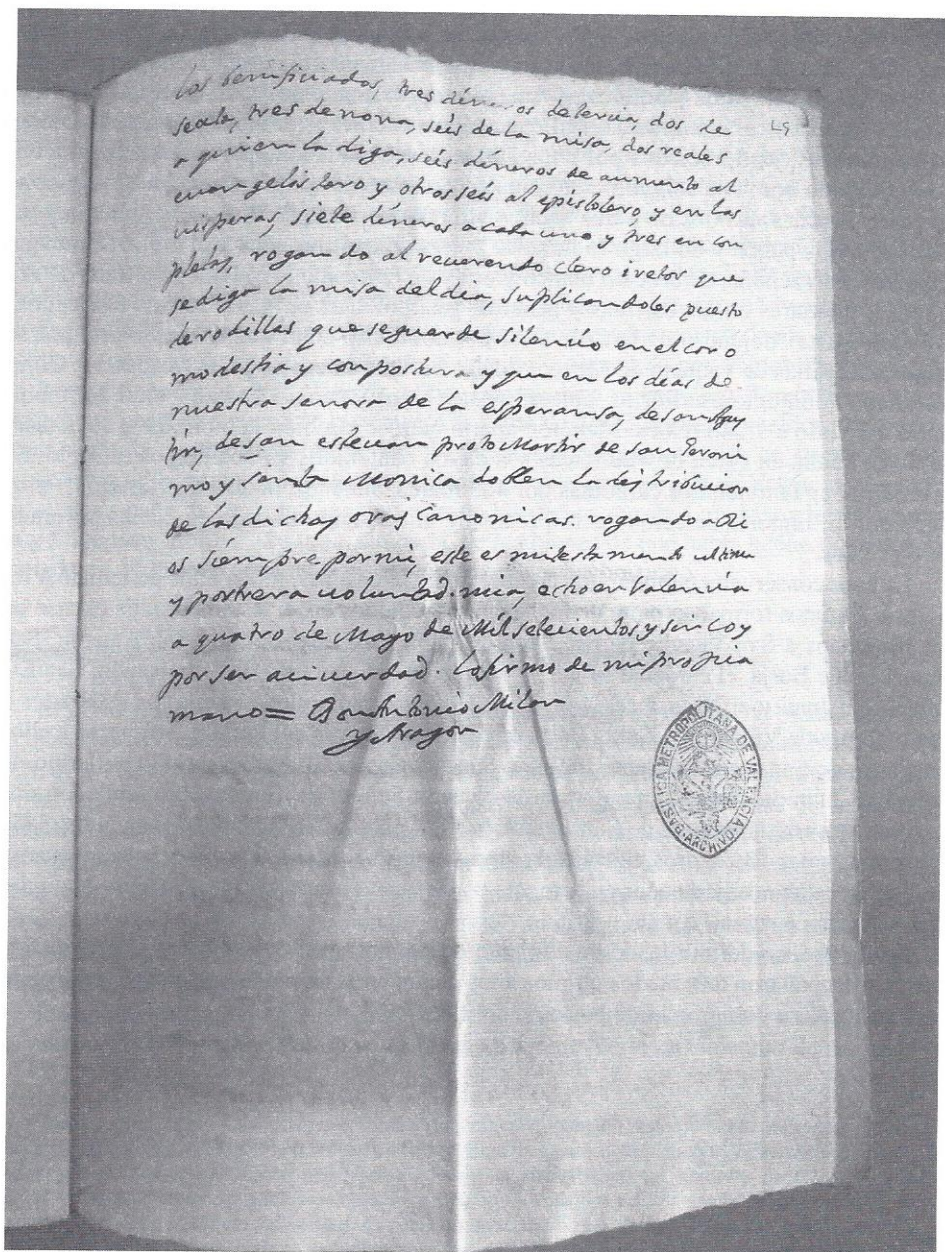 los benificiados, tres dineros de tercia, dos de
secta, tres de nona, seis de la misa, dos reales
a quien la diga, seis dineros de aumento al
euangelistero y otros seis al epistolero, y en las
uisperas, siete dineros a cada uno y tres en con
pletas, rogando al reuerendo clero i retor que
se diga la misa del dia, suplicandoles puesto
de rodillas que se guarde silencio en el coro
modestia y conpostura y que en los dias de
nuestra senora de la esperansa, de san Agus
tin, de san esteuan proto Martir de san Geroni
mo y santa Monica doblen la distribucion
de las dichas oras Canonicas. rogando a Di
os siempre por mi, este es mi testamento ultimo
y postrera uoluntad. mia, echo en Valencia
a quatro de Mayo de Mil setecientos y sinco y
por ser asi uerdad. lo firmo de mi propia
mano = Don Antonio Milan
y Aragon
BASILICA METROPOLITANA DE VALENCIA
ARCHIVO